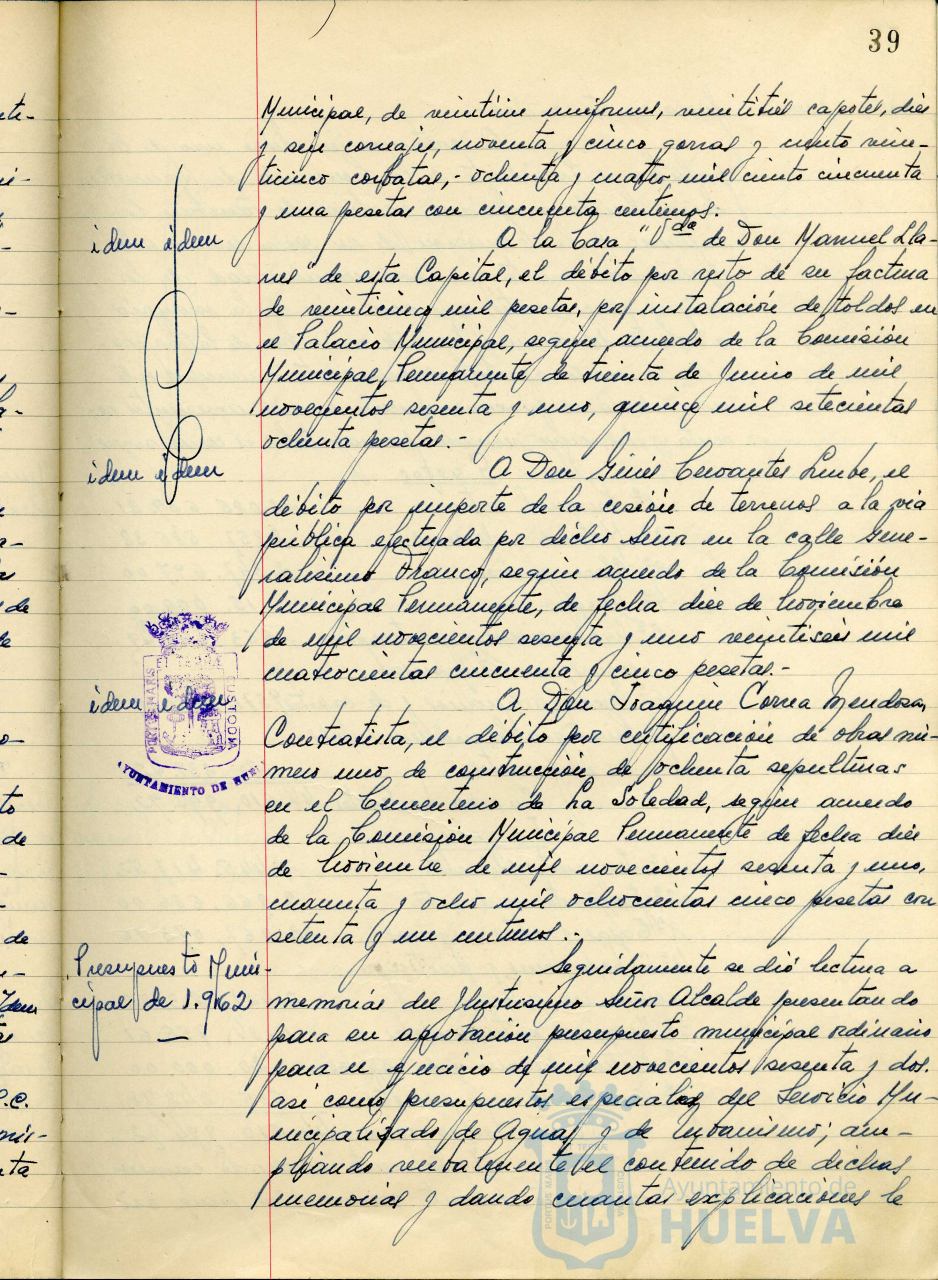 39
Municipal, de veintiun uniformes, veintitrés capotes, diez
y seis correajes, noventa y cinco gorras y ciento vein-
ticinco corbatas,- ochenta y cuatro mil ciento cincuenta
y una pesetas con cincuenta centimos.
idem idem
A la Casa "Vda de Don Manuel Lla-
nes" de esta Capital, el débito por resto de su factura
de veinticinco mil pesetas, por instalación de toldos en
el Palacio Municipal, según acuerdo de la Comisión
Municipal Permanente de treinta de Junio de mil
novecientos sesenta y uno, quince mil setecientas
ochenta pesetas.-
idem idem
A Don Ginés Cervantes, el
débito por importe de la cesión de terrenos a la via
pública efectuada por dicho Señor en la calle Gene-
ralisimo Franco, según acuerdo de la Comisión
Municipal Permanente, de fecha diez de Noviembre
de mil novecientos sesenta y uno veintiseis mil
cuatrocientas cincuenta y cinco pesetas.-
idem idem
A Don Joaquin Correa Mendoza,
Contratista, el débito por certificación de obras nú-
mero uno de construcción de ochenta sepulturas
en el Cementerio de La Soledad, según acuerdo
de la Comisión Municipal Permanente de fecha diez
de Noviembre de mil novecientos sesenta y uno,
cuarenta y ocho mil ochocientas cinco pesetas con
setenta y un centimos.-
AYUNTAMIENTO DE HUE
Presupuesto Muni-
cipal de 1.962
Seguidamente se dió lectura a
memorias del Ilustrisimo Señor Alcalde presentando
para su aprobación presupuesto municipal ordinario
para el ejercicio de mil novecientos sesenta y dos.
asi como presupuestos especiales del Servicio Mu-
nicipalizado de Aguas y de Urbanismo; am-
pliando verbalmente el contenido de dichas
memorias y dando cuantas explicaciones le
Ayuntamiento de
HUELVA